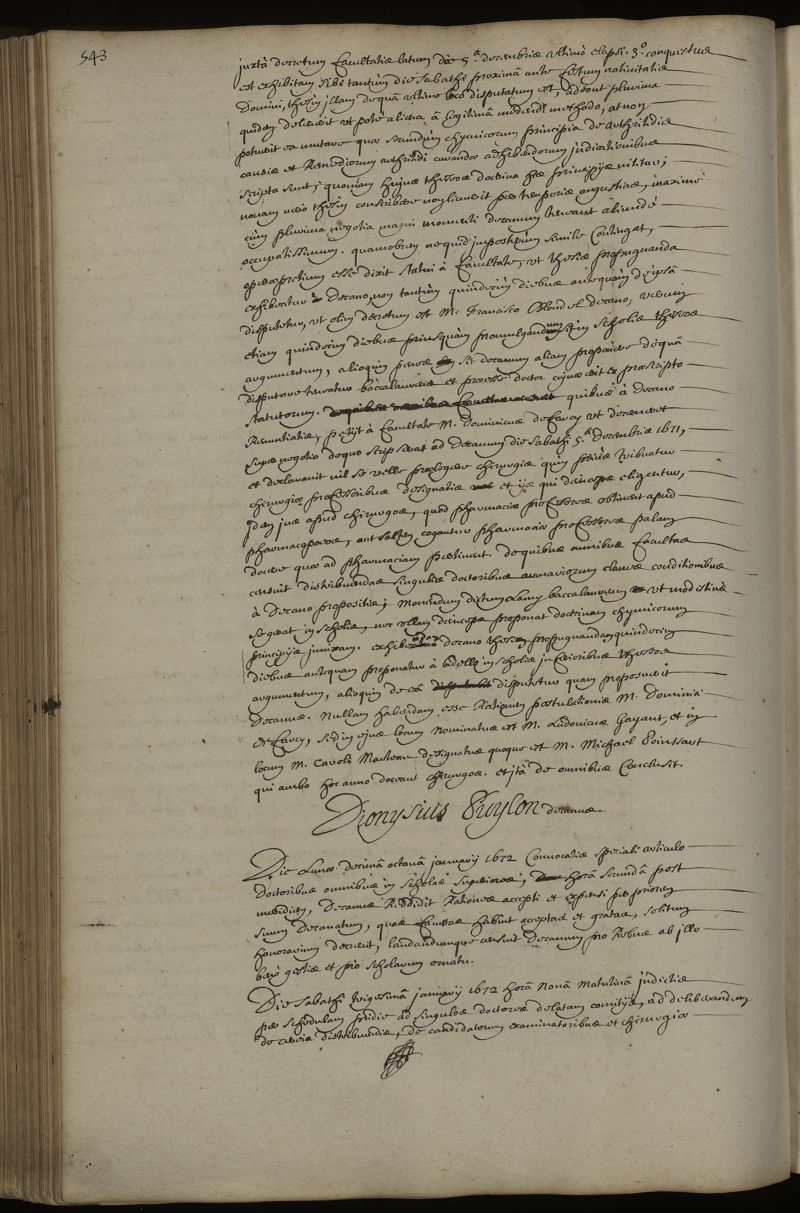 543
juxtà decretum Facultatis latum die 5.a decembris ultimò elapsi. 3.o conquestus
est exhibitam sibi tantùm die sabathi proximâ ante festum nativitatis
Domini, thesin illam de quâ ultimo loco disputatum est, addens plurima
quidem delevit ut pote aliena à legitimâ medendi methodo, at non
potuerit ea mutare quæ secundùm chymicorum principia de arthritidis
causis et remediorum arthritidi curandæ adhibendorum indicationibus
scripta sunt; quoniam hujus theseos doctrina his principiis nititur;
novam vero thesin conscribere non licuerit præ temporis angustiis, maximè
cùm plurima negotia magni momenti decanum teneant aliunde
occupatissimum. quamobrem ne quid in posterùm simile contingat,
operæpretium esse dixit statui à Facultate, ut thesis propugnanda
exhibeatur Decano, non tantùm quindecim diebus antequàm de ipsâ
disputetur, ut olim decretum est M. Francisco Blondel decano, verùm
etiam quindecim diebus priusquàm promulgandum sit in scholis theseos
argumentum, alioquin penes sit decanum aliam proponere de quâ
disputare teneatur baccalaureus et præses doctor cujus erit ex præscripto
statutorum. quibus à Decano
renuntiatis, petijt à Facultate M. Dominicus de Farcy ut decerneret
super negotio de quo scripserat ad Decanum die sabathi 5.a Decembris 1671,
et declaravit nil se velle prælegere chirurgis quin prius tribuatur
chirurgiæ professoribus designatis et iis qui deinceps eligentur,
idem jus apud chirurgos, quod pharmaciæ professores obtinent apud
pharmacopæos, aut saltem cogantur pharmaciæ professores palam
docere quæ ad pharmaciam pertinent. de quibus omnibus Facultas
censuit distribuendas singulis doctoribus ærarii claves conditionibus
à Decano propositis; monendum dictum Lamy baccalaureum ut modestiùs
se gerat in scholis, nec ullam deinceps proponat doctrinam chymicorum
principiis junixam. exhibendam decano thesin propugnandam quindecim
diebus antequam proponatur à bidello in scholis inferioribus theseos
argumentum, alioquin de eâ disputetur quam proposuerit
Decanus. Nullam habendam esse rationem postulationis M. Dominici
de Farcy, sed in ejus locum nominatus est M. Ludovicus Gayant, et in
locum M. Caroli Marteau designatus quoque est M. Michael Poinssart
qui ambo hoc anno doceant chirurgos. et ità de omnibus conclusit.
Dionysius Puylon decanus
Die Lunæ decimâ octavâ januarij 1672 convocatis speciali articulo
Doctoribus omnibus in scholas superiores, horâ secundâ post
meridiem, Decanus reddidit rationes accepti et expensi per priorem
suum Decanatum, quas Facultas habuit acceptas et gratas, solitum
honorarium decrevit, laudandumque censuit Decanum pro rebus ab illo
benè gestis et pro scholarum ornatu.
Die Sabathi trigesimâ januarij 1672 horâ nonâ matutinâ indictis
per schedulam pridie ad singulos doctores delatam comitijs, ad deliberandum
de distribuendis, de candidatorum examinatoribus et chirurgis